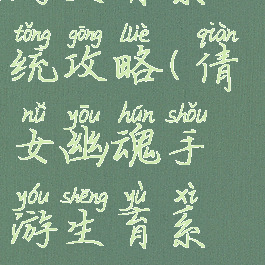 tǒng gōng lüè qiàn
统攻略(倩
nǚ yōu hún shǒu
女幽魂手
yóu shēng yù xì
游生育系